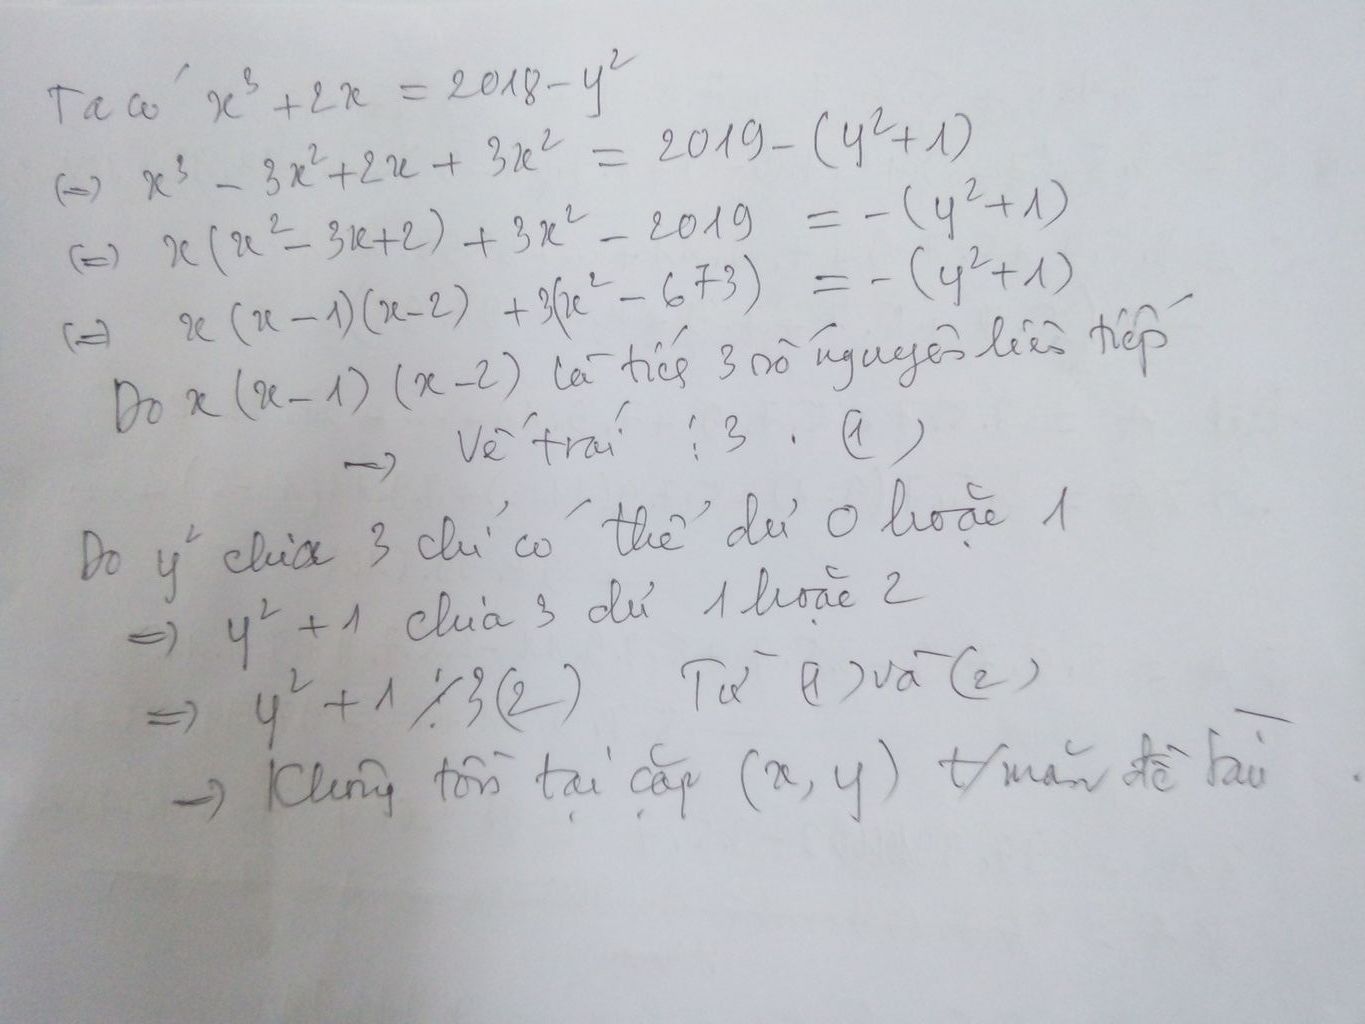 Ta có x³ + 2x = 2018 - y²
(=) x³ - 3x² + 2x + 3x² = 2019 - (y² + 1)
(=) x(x² - 3x + 2) + 3x² - 2019 = - (y² + 1)
(=) x(x - 1)(x - 2) + 3(x² - 673) = - (y² + 1)
Do x(x - 1)(x - 2) là tích 3 số nguyên liên tiếp
→ Vế trái ⋮ 3 . (1)
Do y² chia 3 chỉ có thể dư 0 hoặc 1
=> y² + 1 chia 3 dư 1 hoặc 2
=> y² + 1 ⋮̸ 3 (2) Từ (1) và (2)
→ Không tồn tại cặp (x, y) t/mãn đề bài .